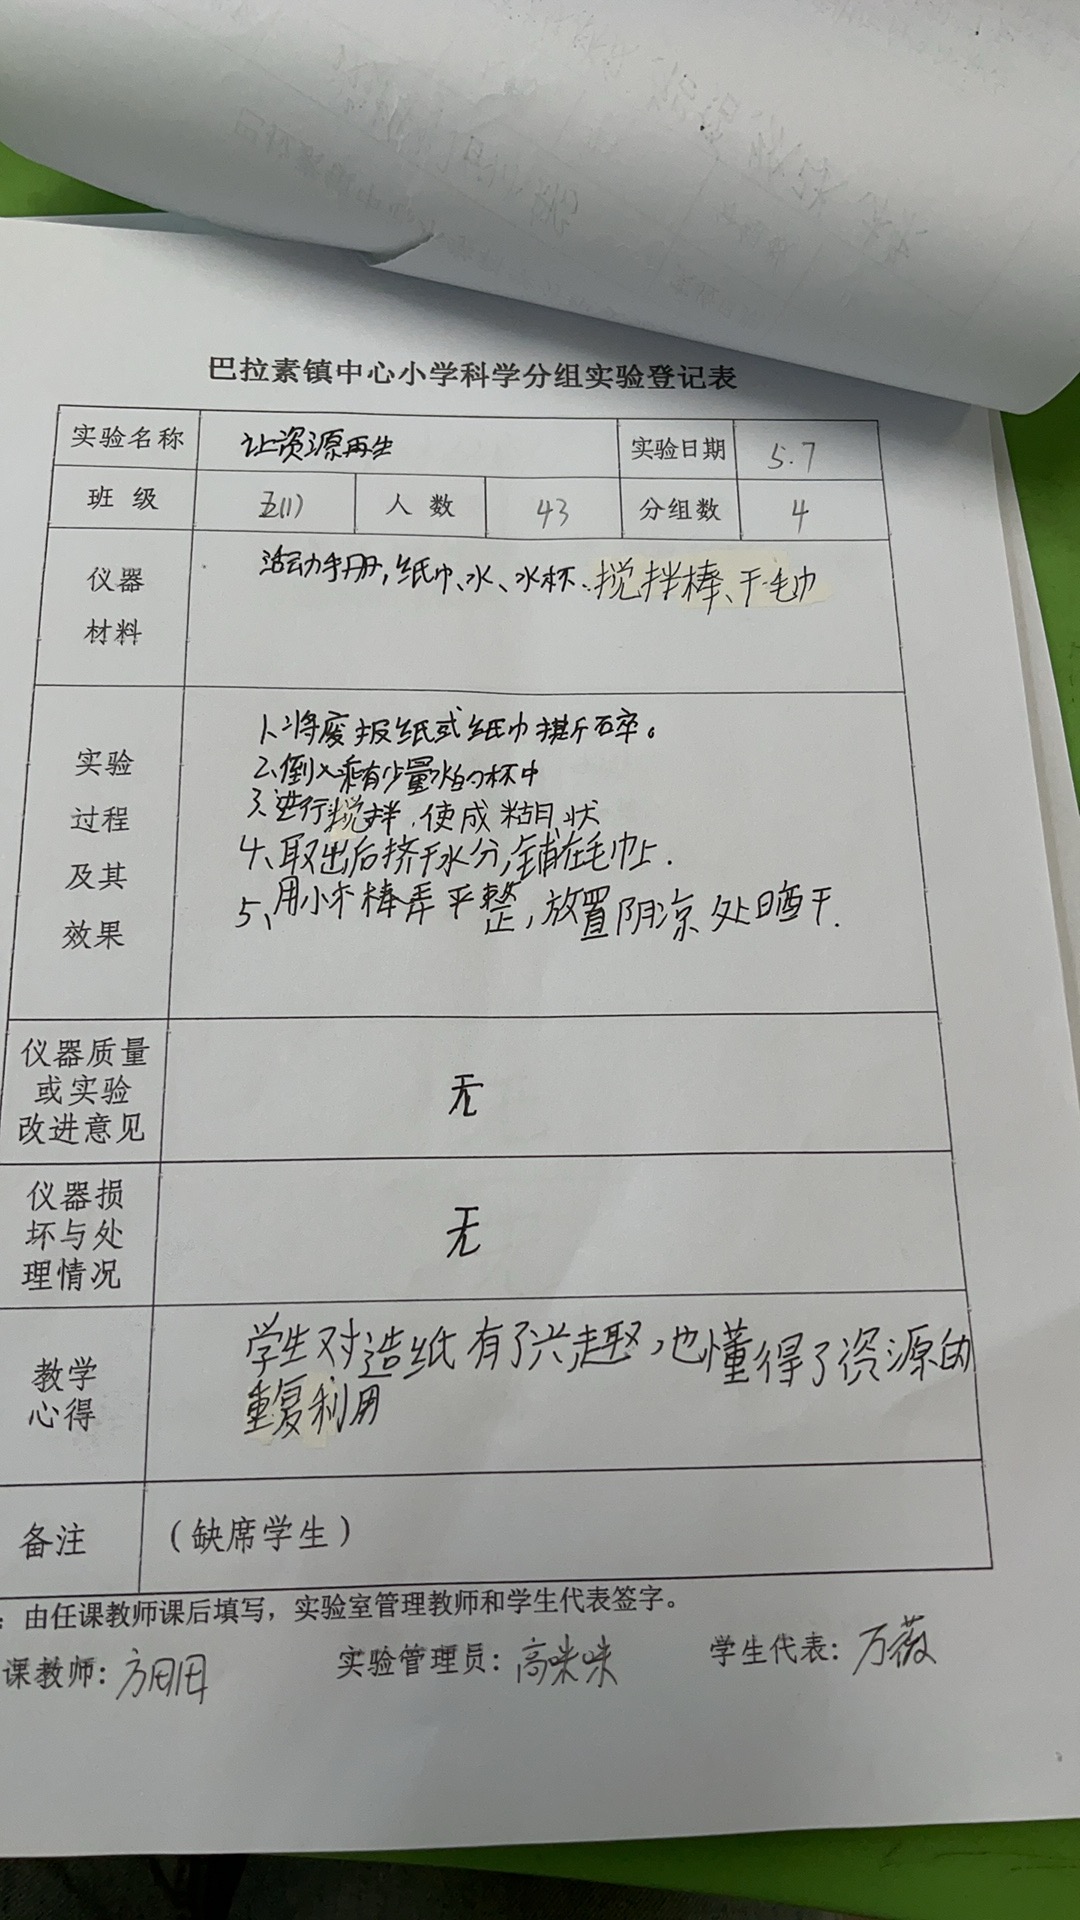 巴拉素镇中心小学科学分组实验登记表
实验名称 让资源再生 实验日期 5.7
班级 五(1) 人数 43 分组数 4
仪器
材料
活动手册,纸巾、水、水杯、搅拌棒、干毛巾
实验
过程
及其
效果
1、将废报纸或纸巾撕碎。
2、倒入乘有少量水的杯中
3、进行搅拌,使成糊状
4、取出后挤干水分,铺在毛巾上.
5、用小木棒弄平整,放置阴凉处晒干.
仪器质量
或实验
改进意见
无
仪器损
坏与处
理情况
无
教学
心得
学生对造纸有了兴趣,也懂得了资源的
重复利用
备注 (缺席学生)
:由任课教师课后填写,实验室管理教师和学生代表签字。
课教师: 实验管理员:高咪咪 学生代表:万薇